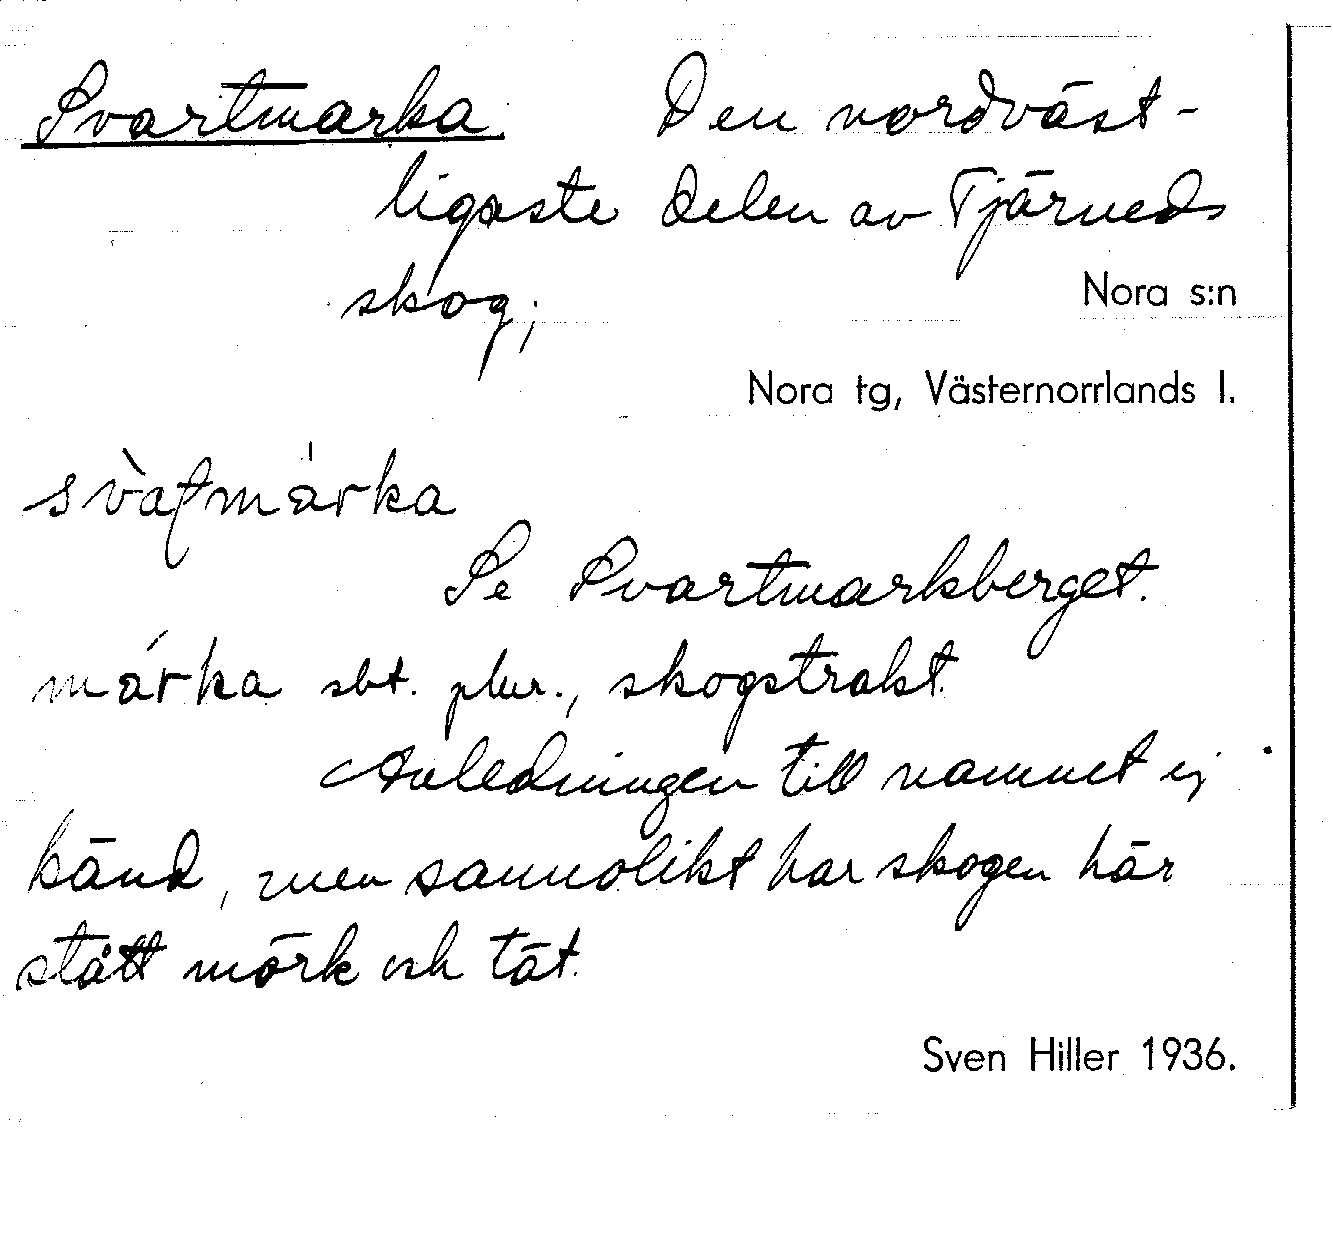 Svartmarka Den nordväst-
ligaste delen av Tjärneds
skog;
Nora s:n
Nora tg, Västernorrlands l.
svàʈmárka
Se Svartmarkberget.
márka sbt. plur., skogstrakt.
Avledningen till namnet ej
känd, men sannolikt har skogen här
stått mörk och tät.
Sven Hiller 1936.